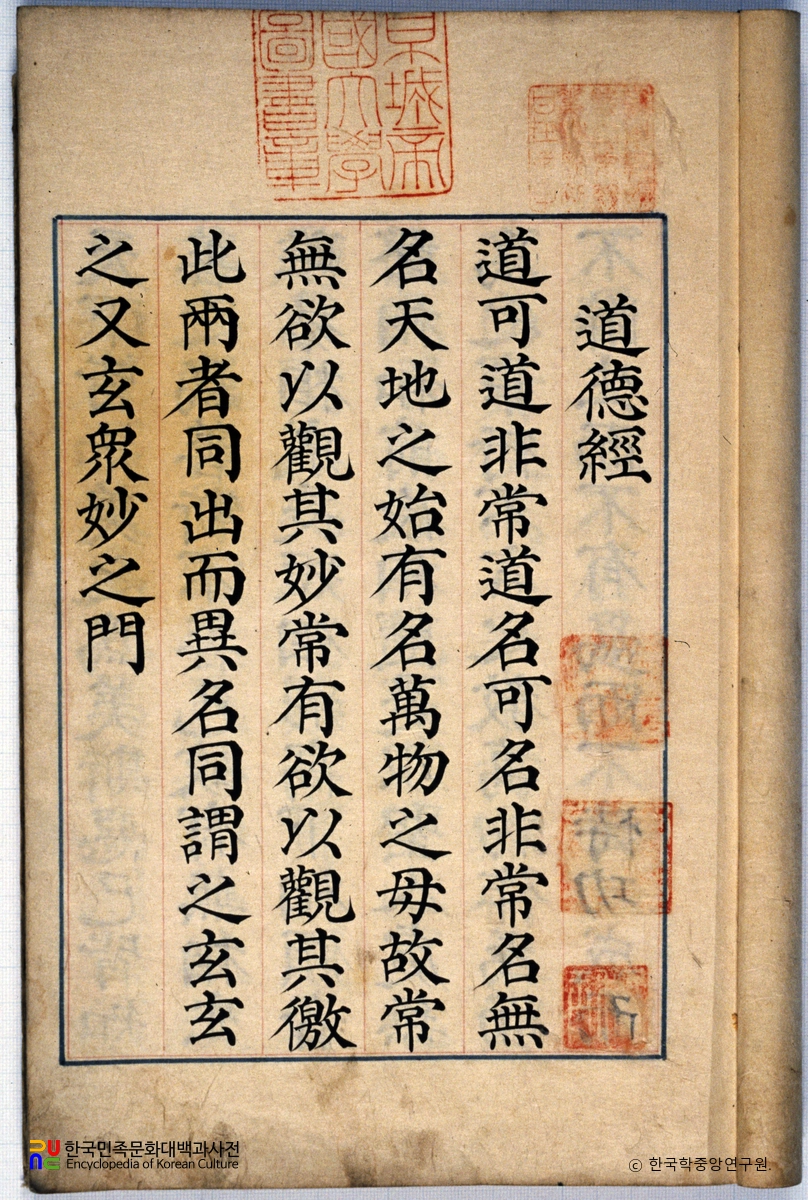 京城帝
國大學
圖書章
道德經
道可道非常道名可名非常名無
名天地之始有名萬物之母故常
無欲以觀其妙常有欲以觀其徼
此兩者同出而異名同謂之玄玄
之又玄衆妙之門
한국민족문화대백과사전
Encyclopedia of Korean Culture
© 한국학중앙연구원.